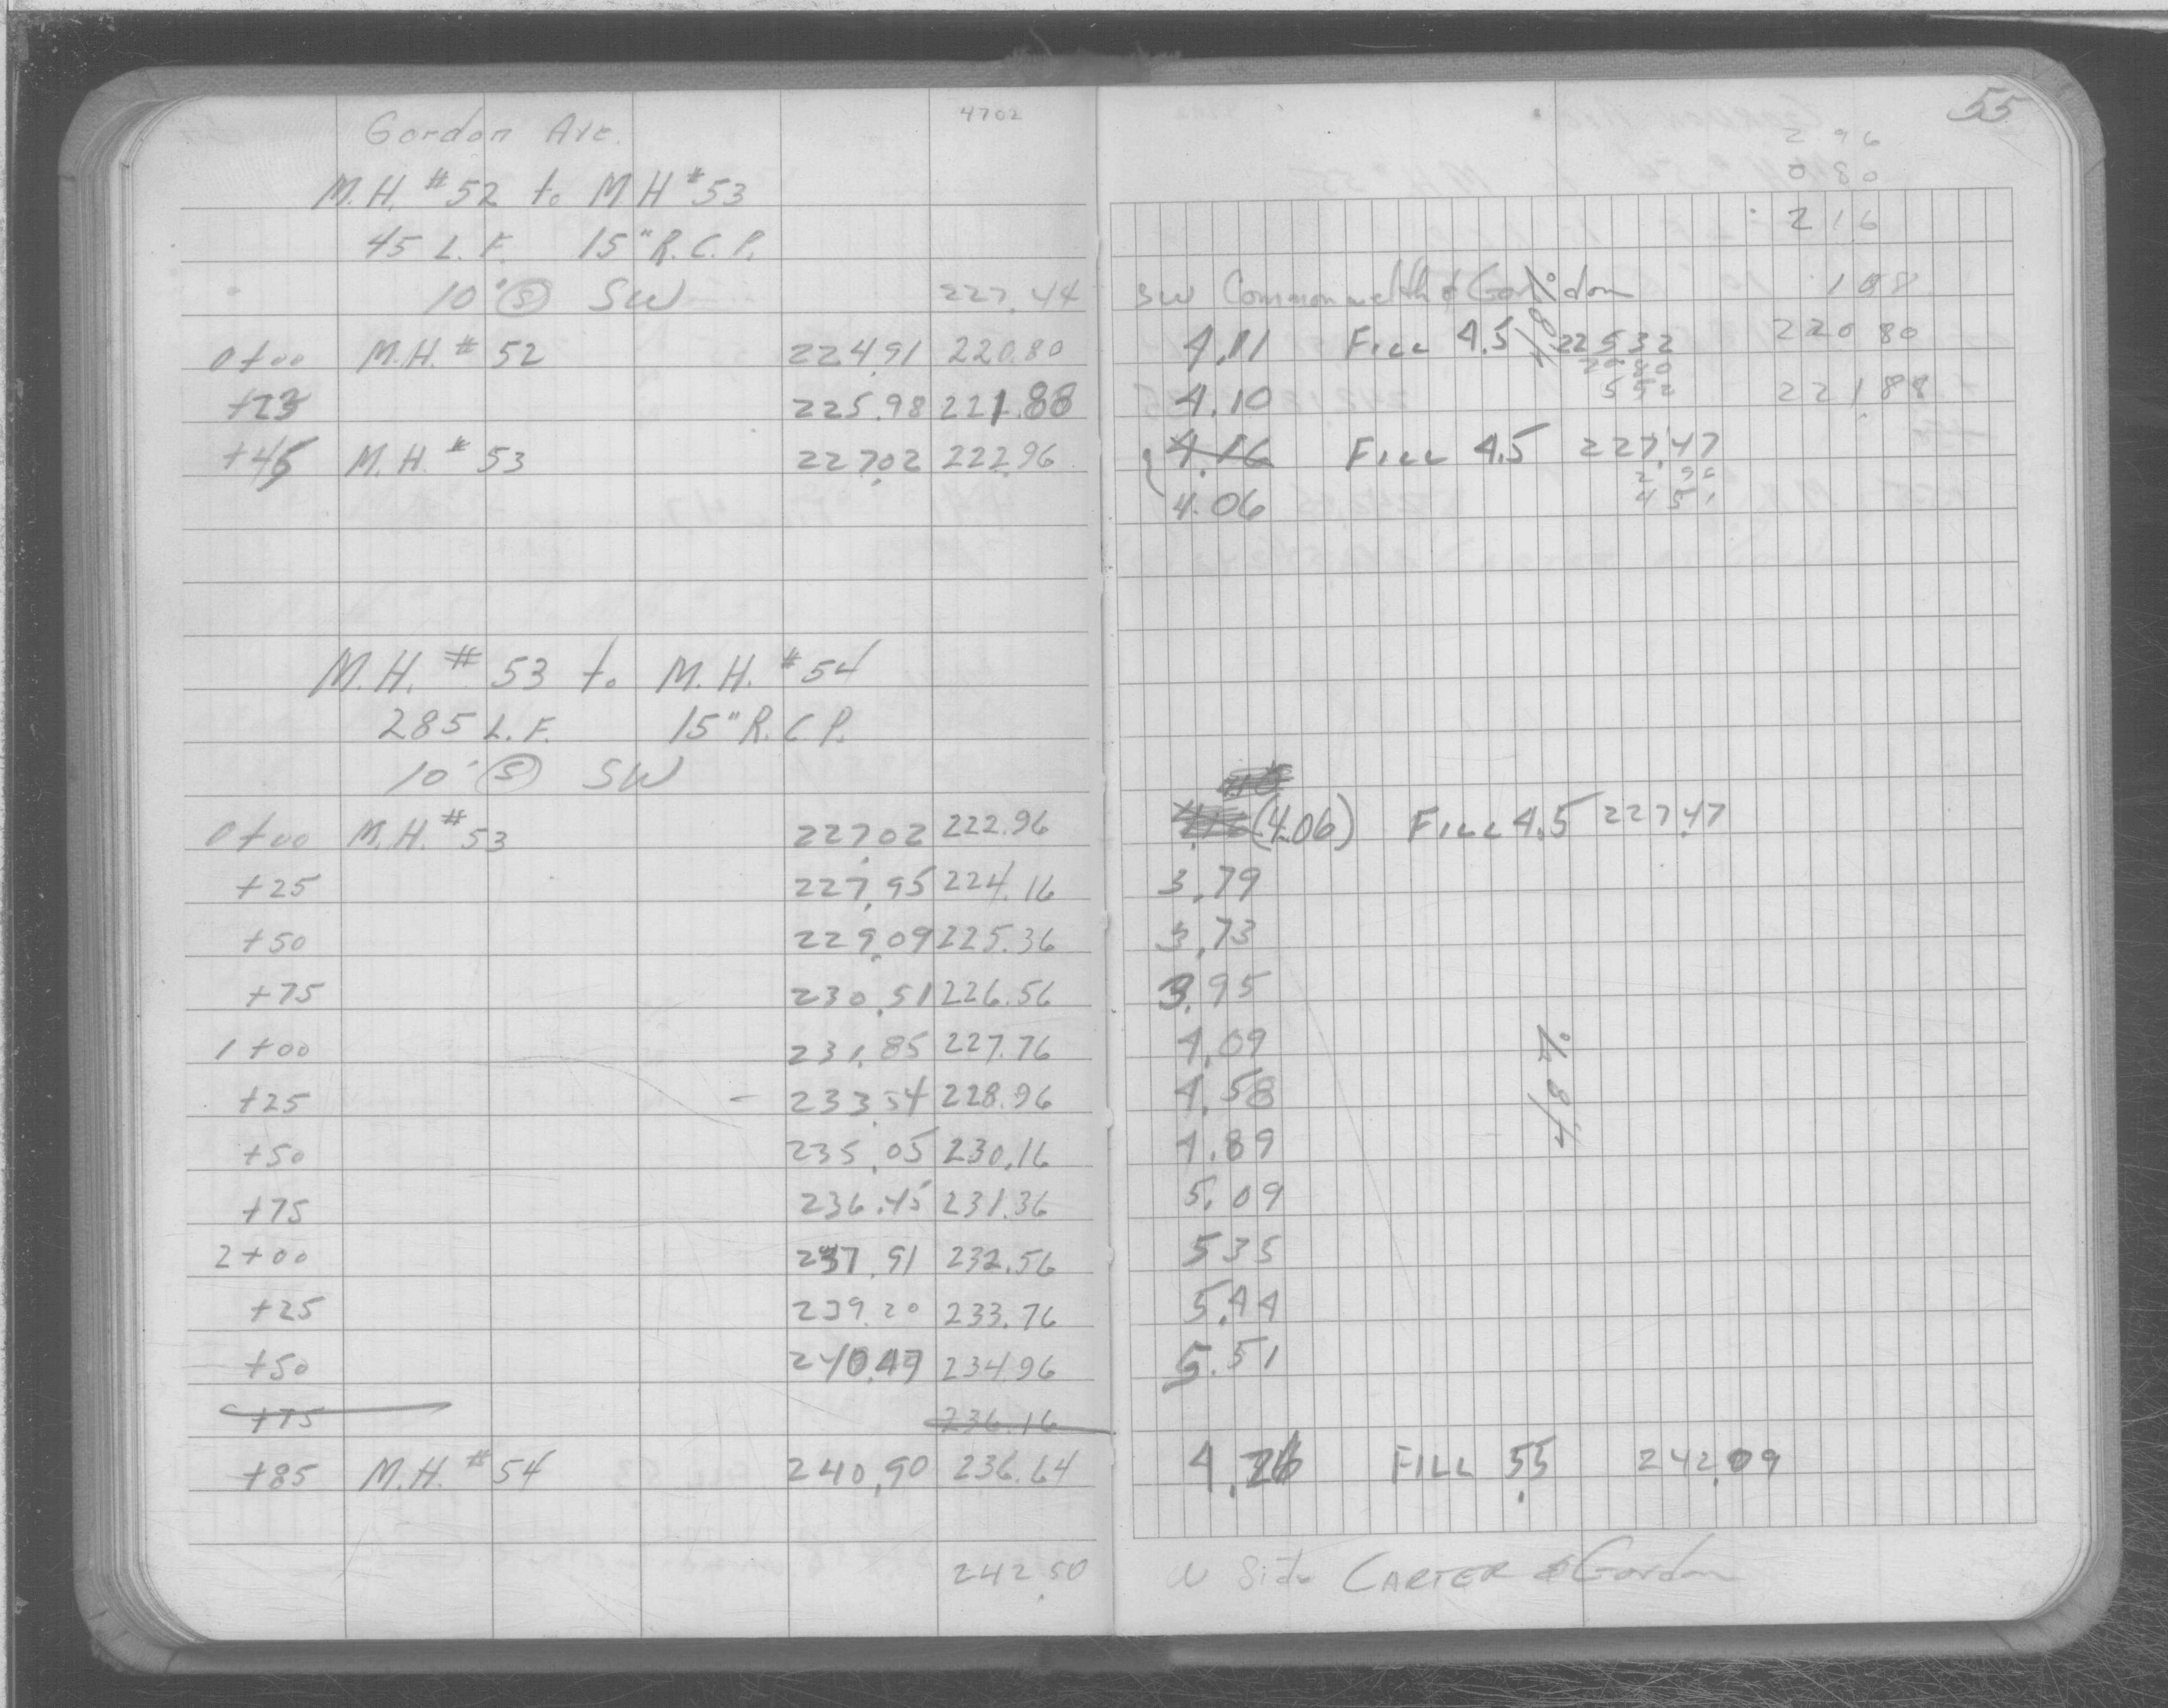 4702
Gordon Ave.
M.H. #52 to M.H #53
45 L.F. 15" R.C.P.
10' Ⓢ SW 227.44
0+00 M.H. # 52 224.91 220.80
+23 225.98 221.88
+45 M.H. # 53 227.02 222.96
M.H. # 53 to M.H. #54
285 L.F. 15" R.C.P.
10' Ⓢ SW
0+00 M.H. #53 227.02 222.96
+25 227.95 224.16
+50 229.09 225.36
+75 230.51 226.56
1+00 231.85 227.76
+25 - 233.54 228.96
+50 235.05 230.16
+75 236.45 231.36
2+00 237.91 232.56
+25 239.20 233.76
+50 240.47 234.96
+75 236.16
+85 M.H. #54 240.90 236.64
242.50
55
2 96
0 80
2 16
SW Commonwelth & Gordon 108
4.11 Fill 4.5 225 32 220 80
20 80
4.10 5 52 221.88
4.16 Fill 4.5 227.47
2 96
4.06 4 51
(4.06) Fill 4.5 227.47
3.79
3.73
3.95
4.09
4.58
4.89
5.09
5 35
5.44
5.51
4.26 FILL 5.5 242.09
W Side CARTER & Gordon